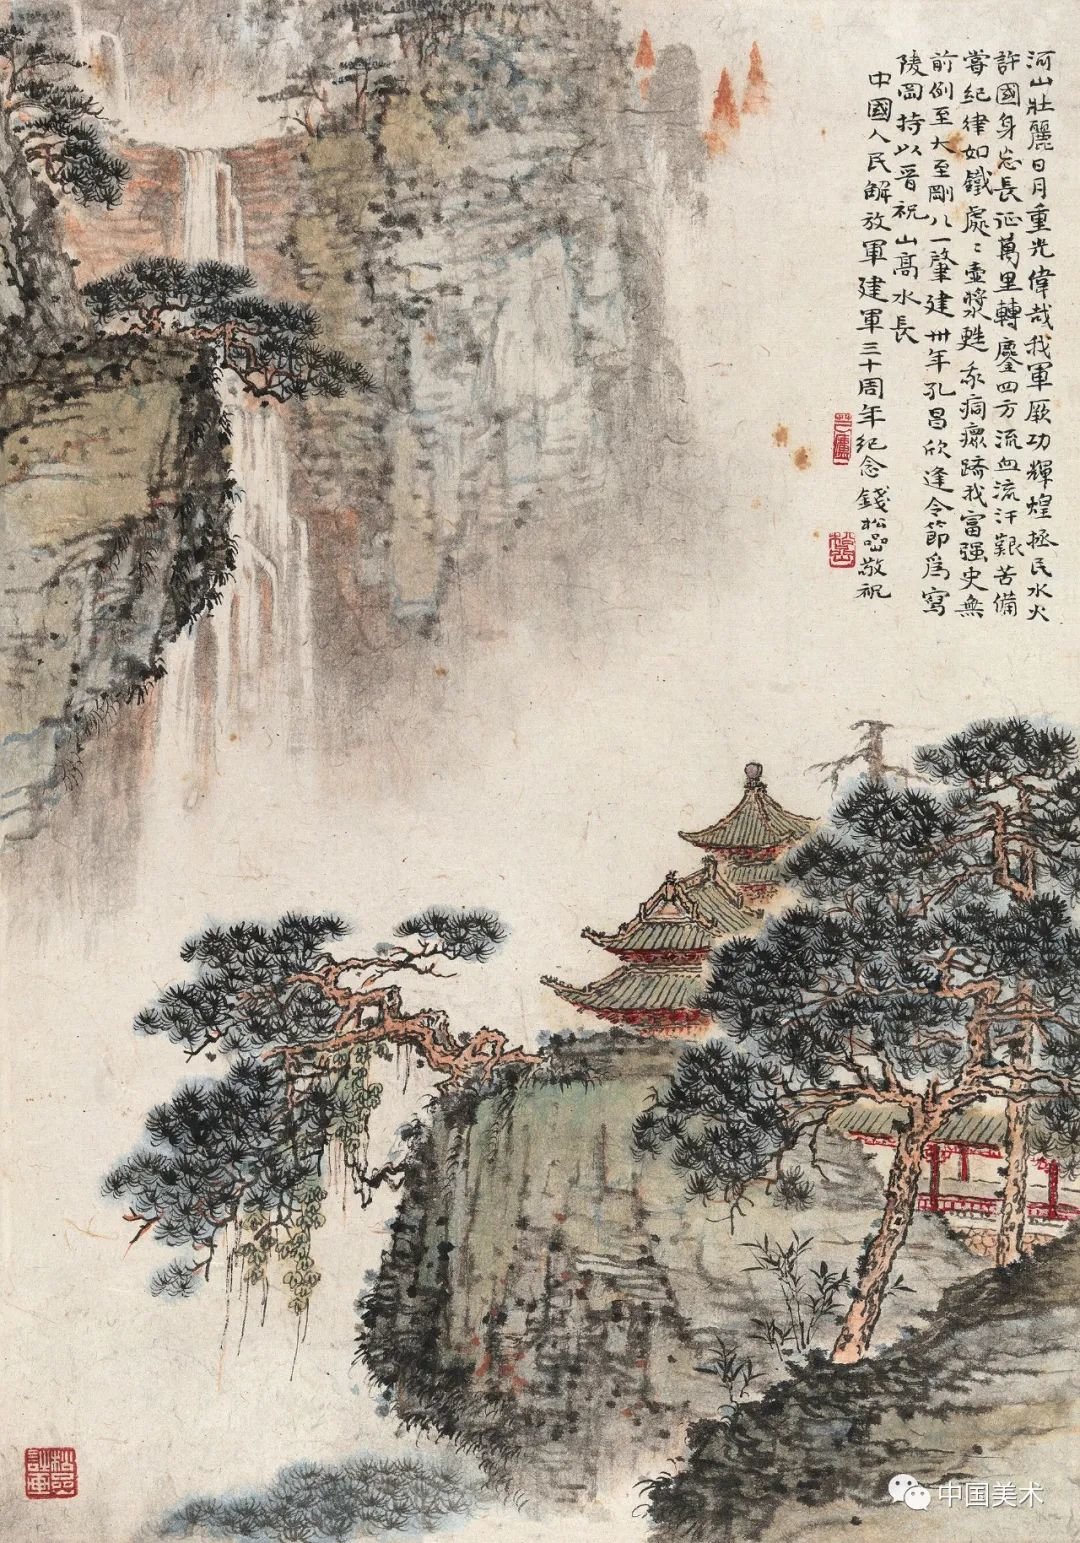 河山壯麗日月重光偉哉我軍厥功輝煌拯民水火
許國身忘長征萬里轉鏖四方流血流汗艱苦備
嘗紀律如鐵處〻壺漿甦痌瘝躋我富强史無
前例至大至剛八一肇建卅年孔昌欣逢令節爲寫
陵岡持以晉祝山高水長
中國人民解放軍建軍三十周年紀念錢松喦敬祝
中国美术